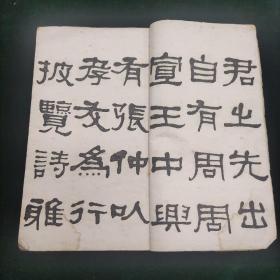 君之先出
自有周周
宣王中興
有張仲以
孝友為行
披覽詩雅